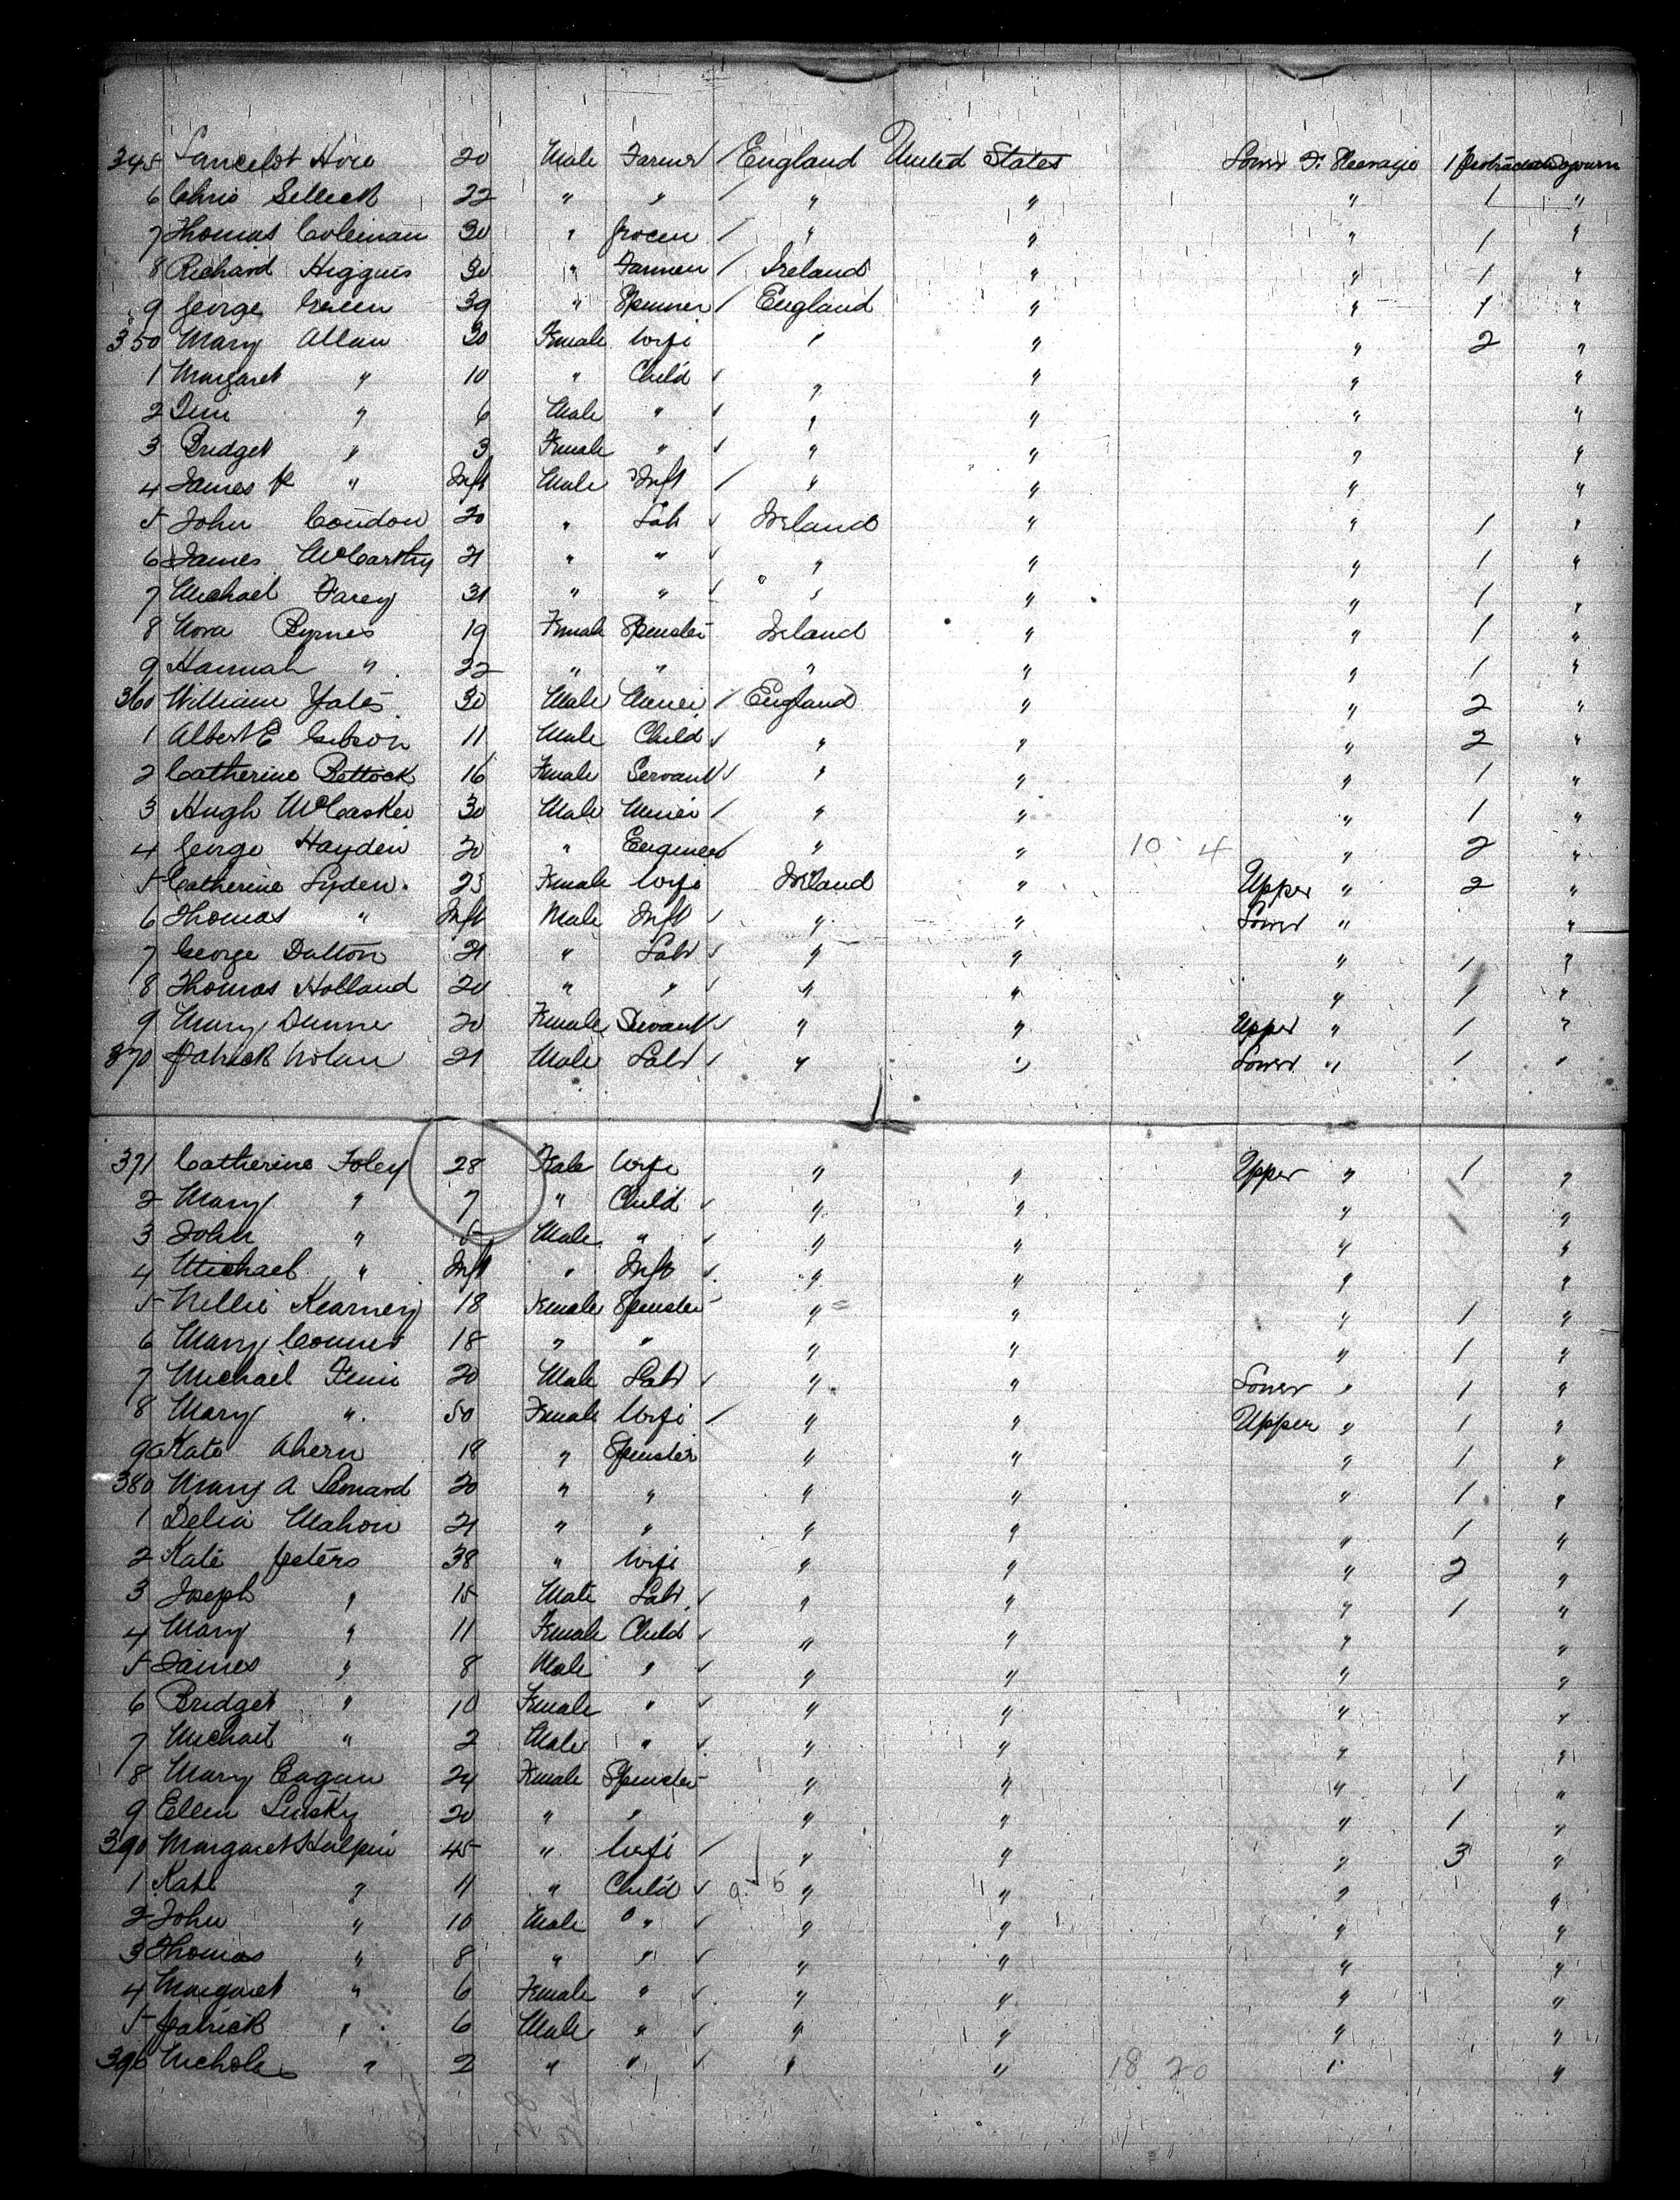 345 Lancelot 20 Male Farmer England United States Lower F. Steerage 1 Protracted Sojourn
6 Chris Selleck 22 " " " " " 1 "
7 Thomas Coleman 30 " Grocer " " " 1 "
8 Richard Higgins 30 " Farmer Ireland " " 1 "
9 George Green 39 " Spinner England " " 1 "
350 Mary Allan 30 Female Wife " " " 2 "
1 Margaret " 10 " Child " " " "
2 " 6 Male " " " " "
3 Bridget " 3 Female " " " " "
4 James P " Inft Male Inft " " " "
5 John Condon 20 " Lab Ireland " " 1 "
6 James McCarthy 21 " " " " " 1 "
7 Michael Farey 31 " " " " " 1 "
8 Nora Byrnes 19 Female Spinster Ireland " " 1 "
9 Hannah " 22 " " " " " 1 "
360 William Yates 30 Male Miner England " " 2 "
1 Albert E Gibson 11 Male Child " " " 2 "
2 Catherine Bottock 16 Female Servant " " " 1 "
3 Hugh McCasker 30 Male Miner " " " 1 "
4 George Hayden 20 " Engineer " " 10 4 " 2 "
5 Catherine Lyden 23 Female Wife Ireland " Upper " 2 "
6 Thomas " Inft Male Inft " " Lower " "
7 George Dalton 21 " Labr " " " 1 "
8 Thomas Holland 20 " " " " " 1 "
9 Mary Dunne 20 Female Servant " " Upper " 1 "
370 Patrick Nolan 21 Male Labr " " Lower " 1 "
371 Catherine Foley 28 Wife " " Upper " 1 "
2 Mary " 7 " Child " " " "
3 John " 5 Male " " " " "
4 Michael " Inft " Inft " " " "
5 Nellie Kearney 18 Female Spinster " " " 1 "
6 Mary Connor 18 " " " " " 1 "
7 Michael 20 Male Labr " " Lower " 1 "
8 Mary " 50 Female Wife " " Upper " 1 "
9 Kate Ahern 18 " Spinster " " " 1 "
380 Mary A Leonard 20 " " " " " 1 "
1 Delia Mahon 21 " " " " " 1 "
2 Kate Peters 38 " Wife " " " 2 "
3 Joseph " 15 Male Labr " " " 1 "
4 Mary " 11 Female Child " " " "
5 James " 8 Male " " " " "
6 Bridget " 10 Female " " " " "
7 Michael " 2 Male " " " " "
8 Mary Eagan 24 Female Spinster " " " 1 "
9 Ellen Linsky 20 " " " " " 1 "
390 Margaret Halpin 45 " Wife " " " 3 "
1 Kate " 11 " Child 9 5 " " " "
2 John " 10 Male " " " " "
3 Thomas " 8 " " " " " "
4 Margaret " 6 Female " " " " "
5 Patrick " 6 Male " " " " "
396 " 2 " " " " 18 20 " "